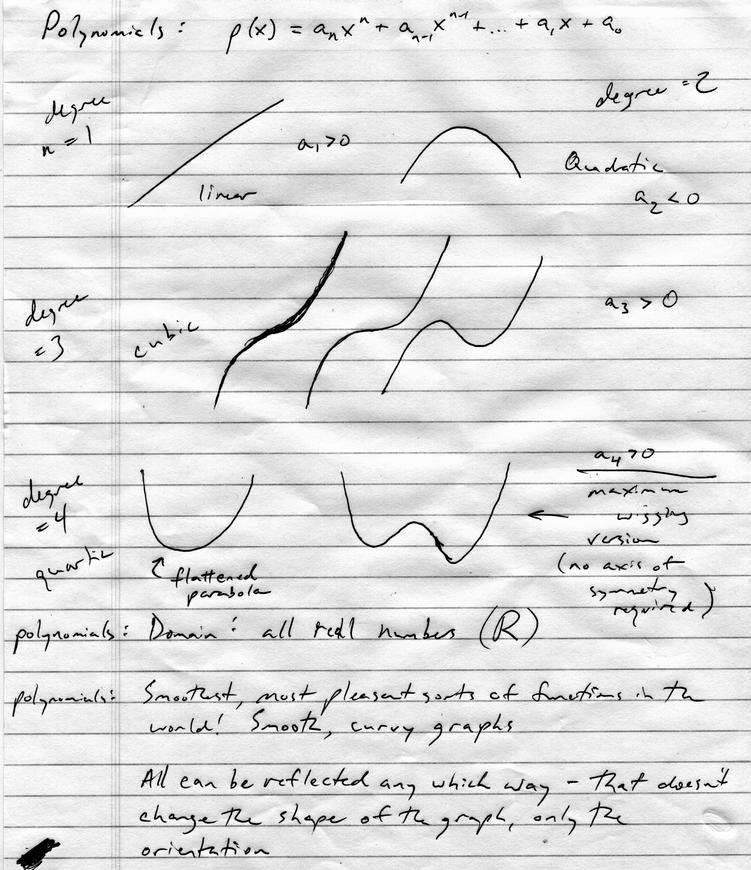 Polynomials: p(x) = aₙxⁿ + aₙ₋₁xⁿ⁻¹ + ... + a₁x + a₀
degree n = 1
a₁ > 0
linear
degree = 2
Quadratic
a₂ < 0
degree = 3
cubic
a₃ > 0
degree = 4
quartic
flattened
parabola
a₄ > 0
maximum
version
(no axis of
symmetry
required)
polynomials: Domain: all real numbers (R)
polynomials: Smoothest, most pleasant sorts of functions in the
world! Smooth, curvy graphs
All can be reflected any which way - that doesn't
change the shape of the graph, only the
orientation